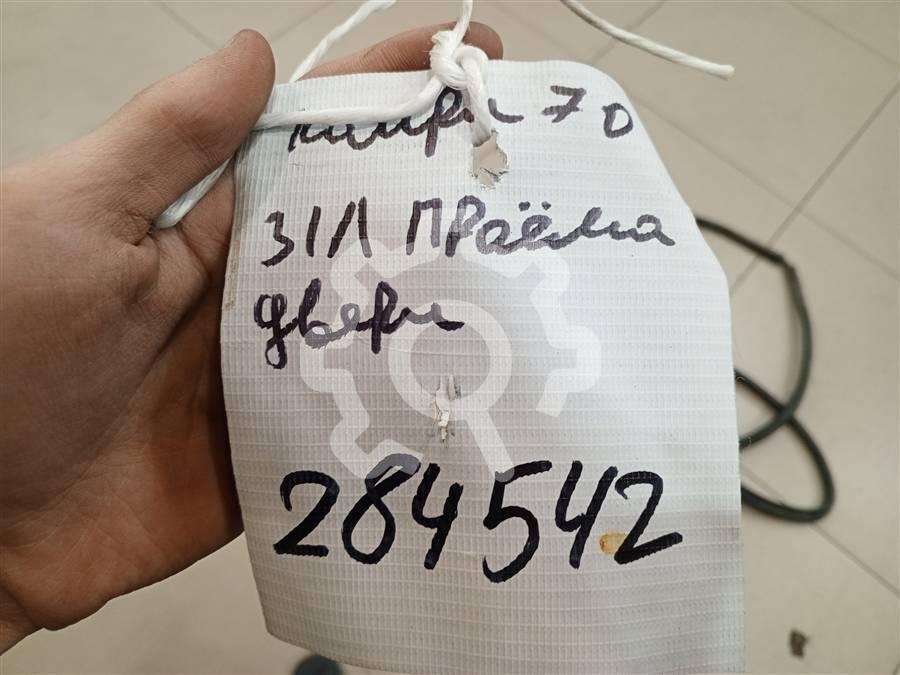 Камри 70
З/Л ПРоёма
двери
284542